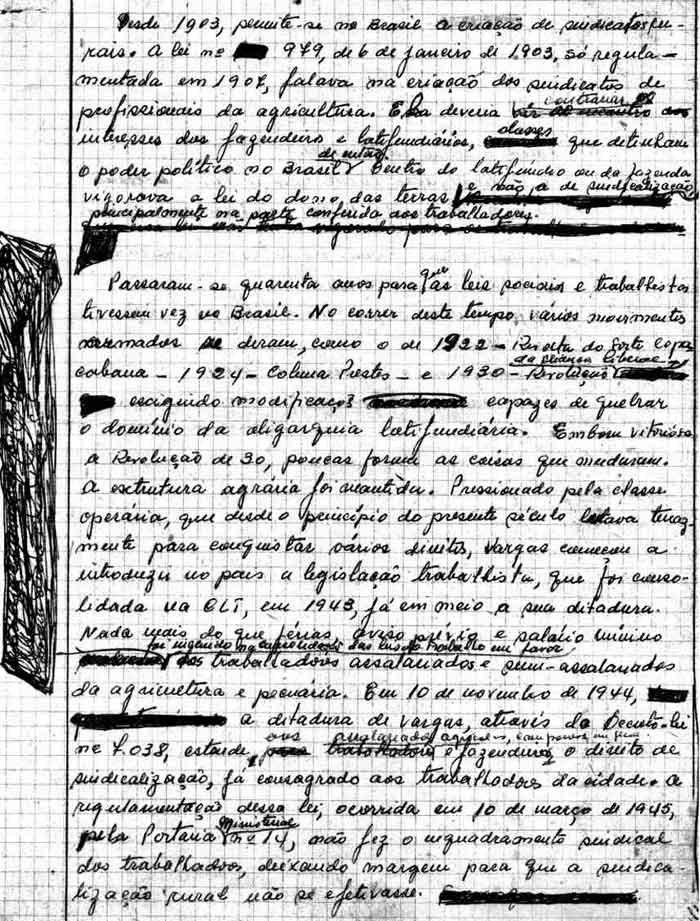 Desde 1903, permite-se no Brasil a criação de sindicatos ru-
rais. A lei nº 979, de 6 de janeiro de 1903, só regula-
mentada em 1907, falava na criação dos sindicatos de
profissionais da agricultura. Ela deveria contrariar os
interesses dos fazendeiros e latifundiários, classes que detinham
o poder político no Brasil de então. Dentro do latifúndio ou da fazenda
vigorava a lei do dono das terras e não a de sindicalização,
principalmente na parte conferida aos trabalhadores.
Passaram-se quarenta anos para que as leis sociais e trabalhistas
tivessem vez no Brasil. No correr deste tempo vários movimentos
armados se deram, como o de 1922 - Revolta do Forte Copa-
cabana - 1924 - Coluna Prestes - e 1930 - Revolução da Aliança Liberal
modificaçõ capazes de quebrar
o domínio da oligarquia latifundiária. Embora vitoriosa
a Revolução de 30, poucas foram as coisas que mudaram.
A estrutura agrária foi mantida. Pressionado pela classe
operária, que desde o princípio do presente século lutava tenaz
mente para conquistar vários direitos, Vargas começou a
introduzir no país a legislação trabalhista, que foi conso-
lidada na CLT, em 1943, já em meio a sua ditadura.
Nada mais do que férias, aviso prévio e salário mínimo
foi inserido na Consolidação das Leis do Trabalho em favor
dos trabalhadores assalariados e semi-assalariados
da agricultura e pecuária. Em 10 de novembro de 1944,
a ditadura de Vargas, através do Decreto-lei
nº 7.038, estende, aos assalariados agrícolas, e fazendeiros o direito de
sindicalização, já consagrado aos trabalhadores da cidade. A
regulamentação dessa lei, ocorrida em 10 de março de 1945,
pela Portaria Ministerial nº 14, não fez o enquadramento sindical
dos trabalhadores, deixando margem para que a sindica-
lização rural não se efetivasse.